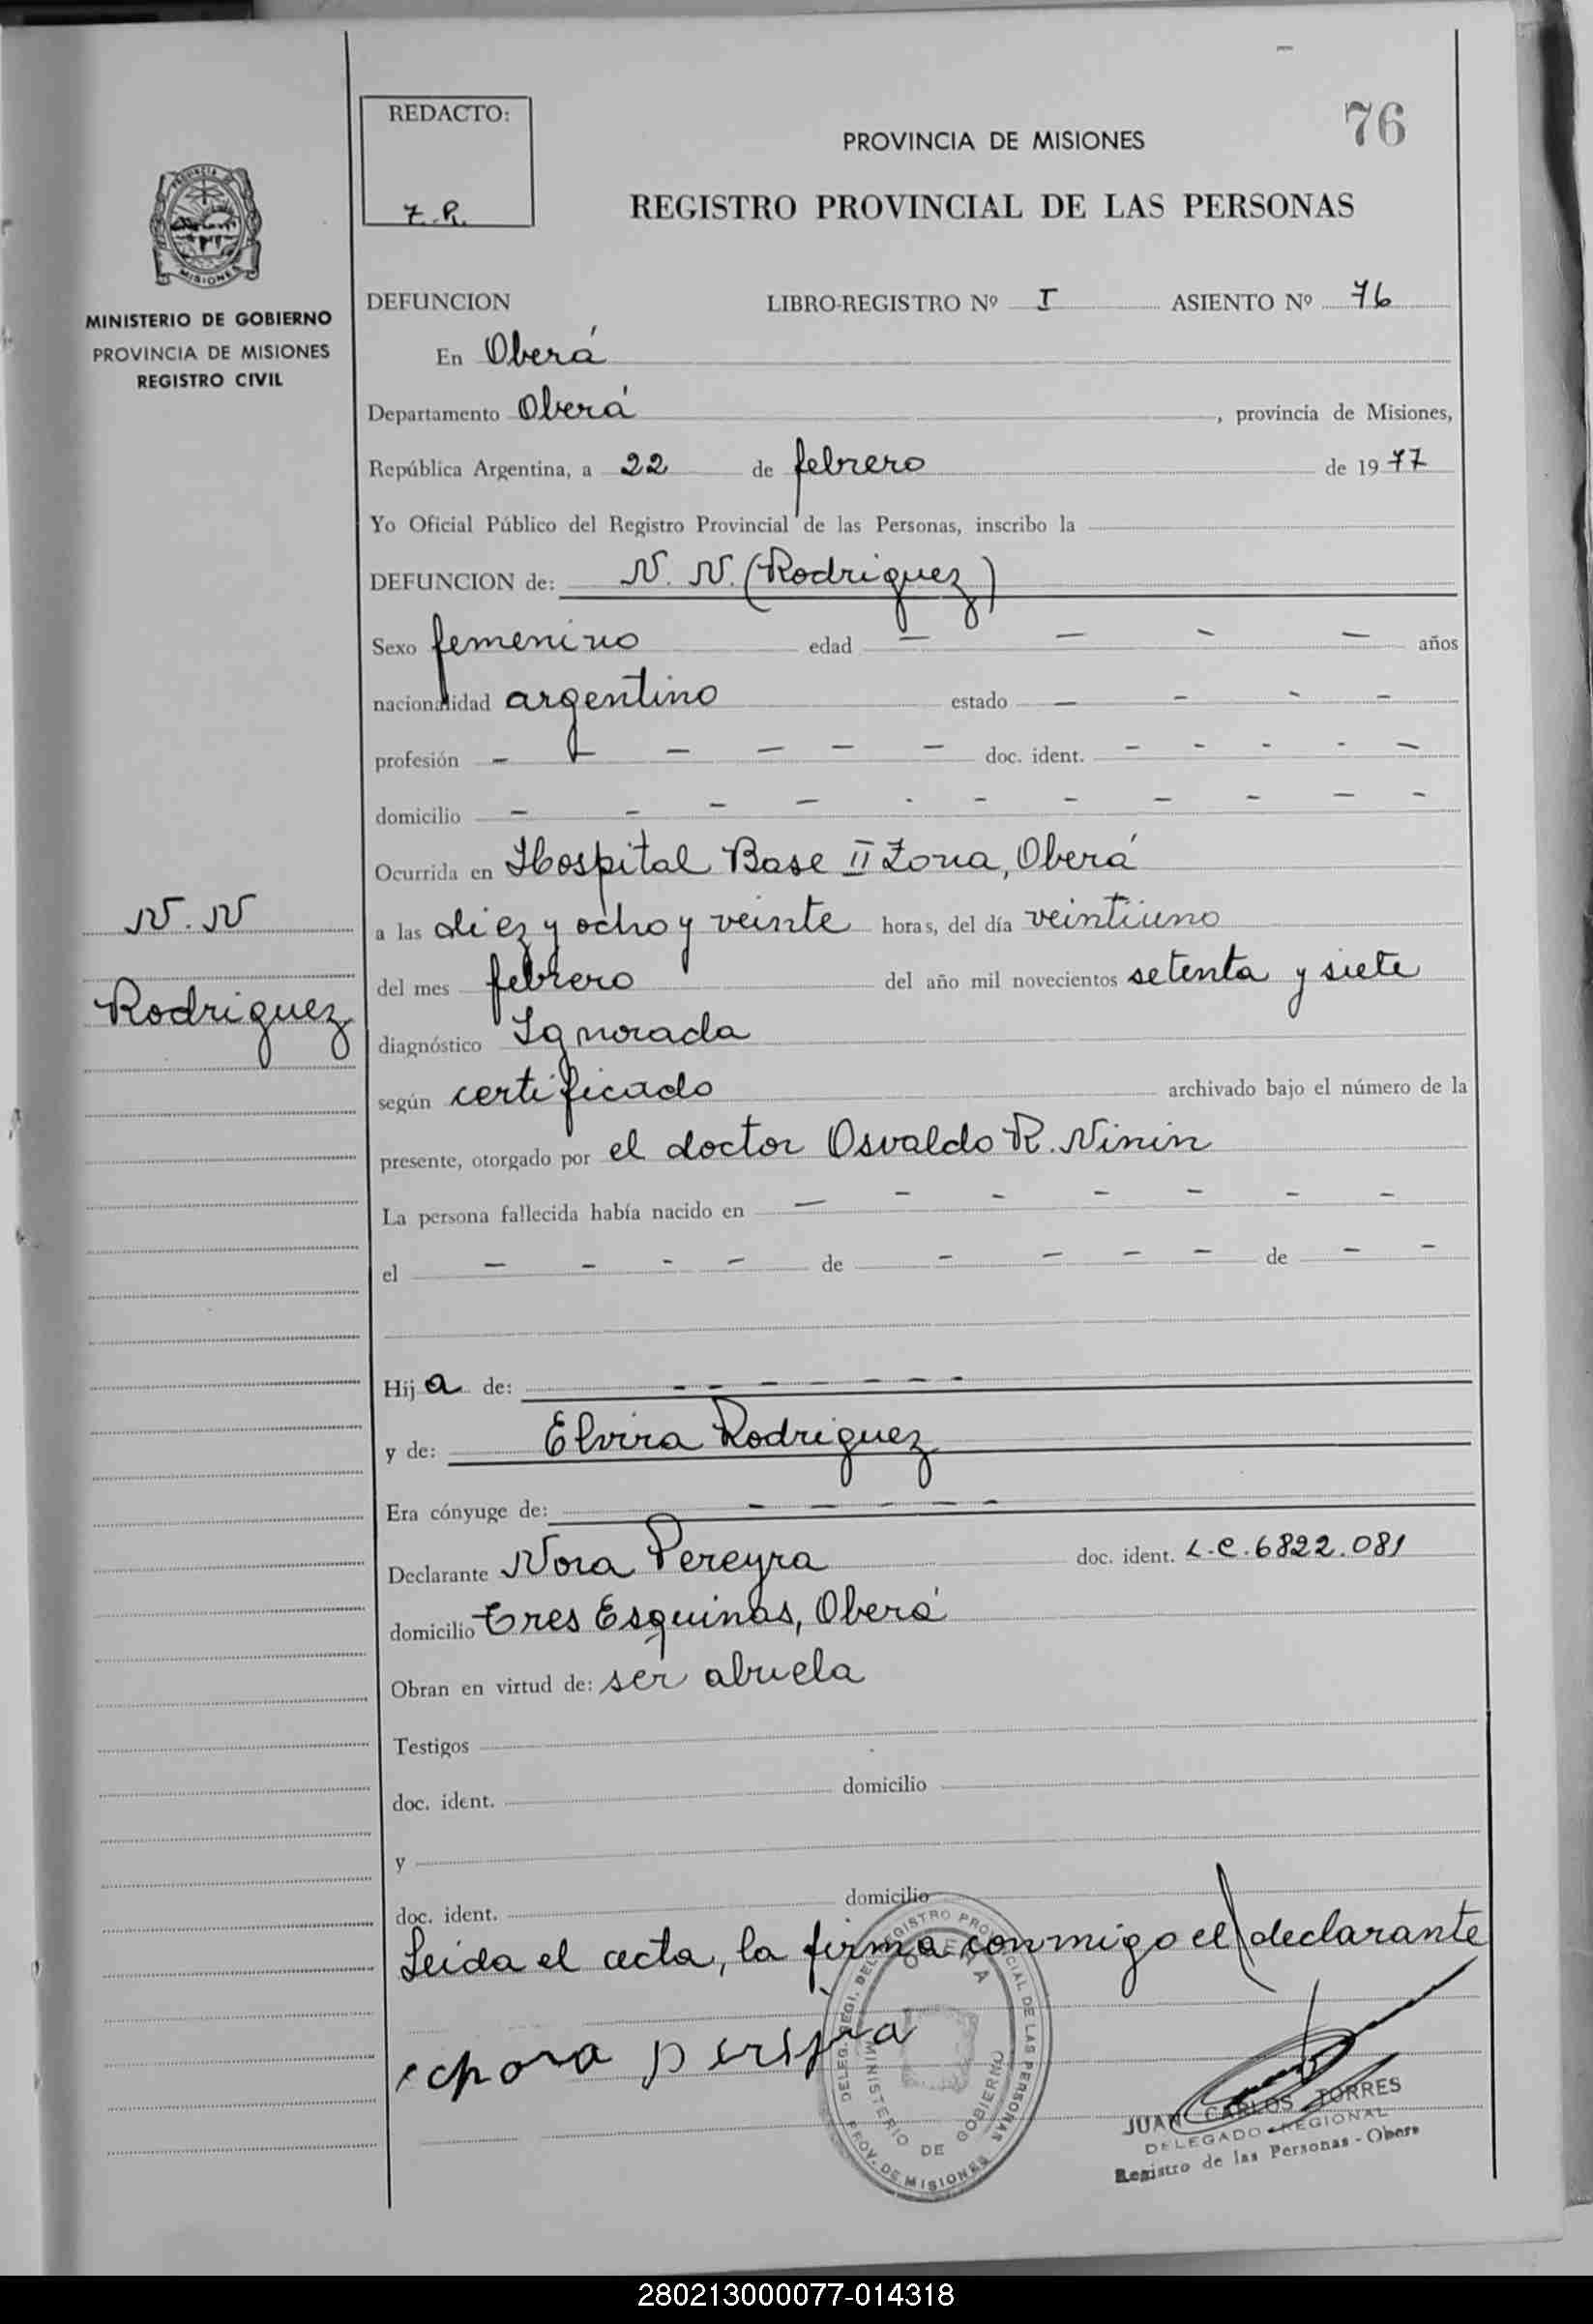 REDACTO:
Z. R.
76
PROVINCIA DE MISIONES
REGISTRO PROVINCIAL DE LAS PERSONAS
PROVINCIA DE
MISIONES
MINISTERIO DE GOBIERNO
PROVINCIA DE MISIONES
REGISTRO CIVIL
DEFUNCION LIBRO-REGISTRO Nº I ASIENTO Nº 76
En Oberá
Departamento Oberá, provincia de Misiones,
República Argentina, a 22 de febrero de 1977
Yo Oficial Público del Registro Provincial de las Personas, inscribo la
DEFUNCION de: N. N. (Rodriguez)
Sexo femenino edad — — — — años
nacionalidad argentino estado — - - -
profesión - - - - - - doc. ident. - - - - -
domicilio - - - - - - - - - - -
Ocurrida en Hospital Base II Zona, Oberá
N. N
a las diez y ocho y veinte horas, del día veintiuno
del mes febrero del año mil novecientos setenta y siete
Rodriguez
diagnóstico Ignorada
según certificado archivado bajo el número de la
presente, otorgado por el doctor Osvaldo R. Ninin
La persona fallecida había nacido en - - - - - - -
el - - - - de - - - - de - -
Hija de: - - - - - -
y de: Elvira Rodriguez
Era cónyuge de: - - - - -
Declarante Nora Pereyra doc. ident. L.C. 6822.081
domicilio Tres Esquinas, Oberá
Obran en virtud de: ser abuela
Testigos
doc. ident. domicilio
y
doc. ident. domicilio
Leida el acta, la firma conmigo el declarante
DELEG. REGI. DEL REGISTRO PROVINCIAL DE LAS PERSONAS
OBERA
MINISTERIO DE GOBIERNO
PROV. DE MISIONES
JUAN CARLOS TORRES
DELEGADO REGIONAL
Registro de las Personas - Obera
280213000077-014318